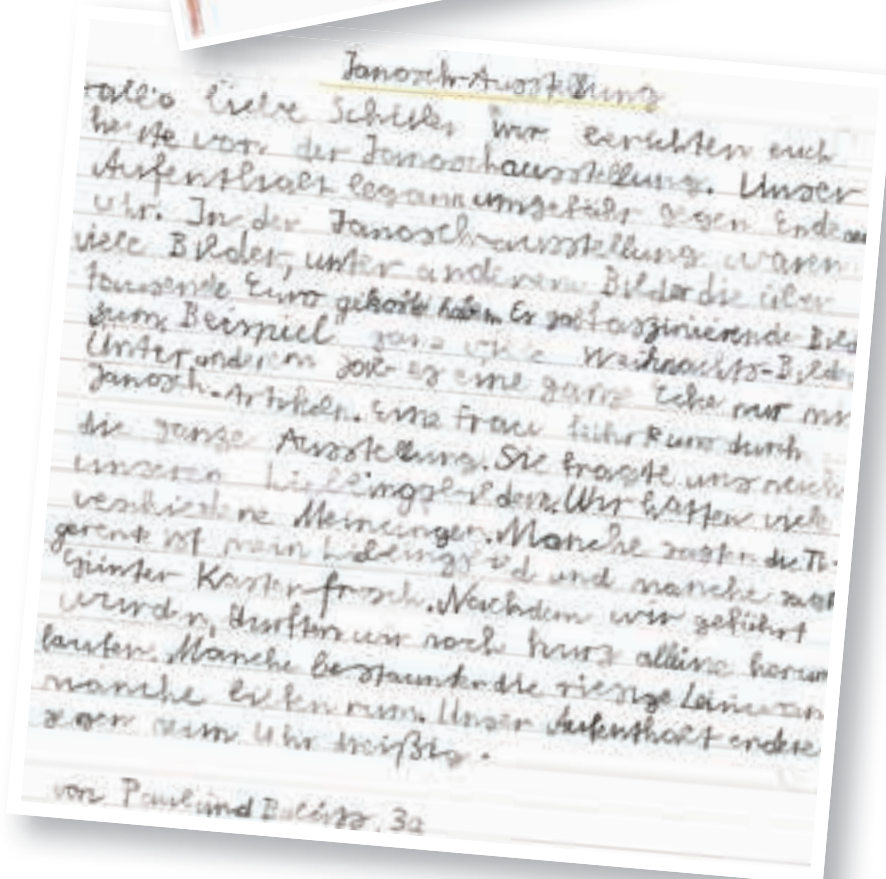 Janosch-Ausstellung
Hallo liebe Schüler wir berichten euch
heute von der Janoschausstellung. Unser
Aufenthalt begann ungefähr gegen Ende
Uhr. In der Janoschausstellung waren
viele Bilder, unter anderem Bilder die über
tausende Euro gekostet haben. Es gab faszinierende Bild
zum Beispiel ganz viele Weihnachts-Bilder
Unter anderem gab es eine ganze Ecke nur mit
Janosch-Artikeln. Eine Frau führte uns durch
die ganze Ausstellung. Sie fragte uns nach
unseren Lieblingsbildern. Wir hatten viele
verschiedene Meinungen. Manche sagten die Ti-
gerente ist mein Lieblingsbild und manche
Günter Kastenfrosch. Nachdem wir geführt
wurden, durften wir noch kurz alleine herum
laufen. Manche bestaunten die riesige Leinwan
manche liefen rum. Unser Aufenthalt endete
gegen neun Uhr dreißig.
von Paul und 3a